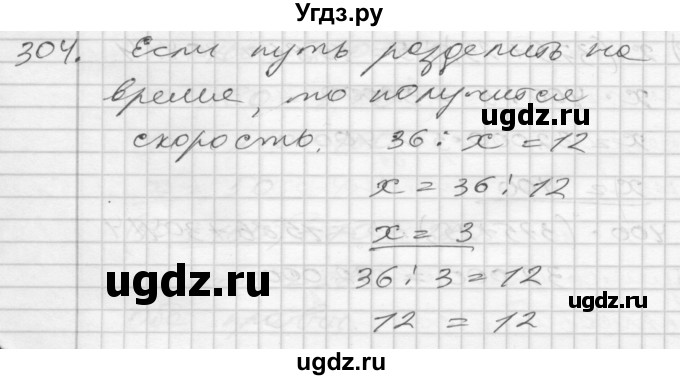 Угдз.ру
304. Если путь разделить на
время, то получится
ugdz.ru
скорость. 36 : x = 12
x = 36 : 12
x = 3
ugdz.ru
ugdz.ru
36 : 3 = 12
12 = 12
ugdz.ru